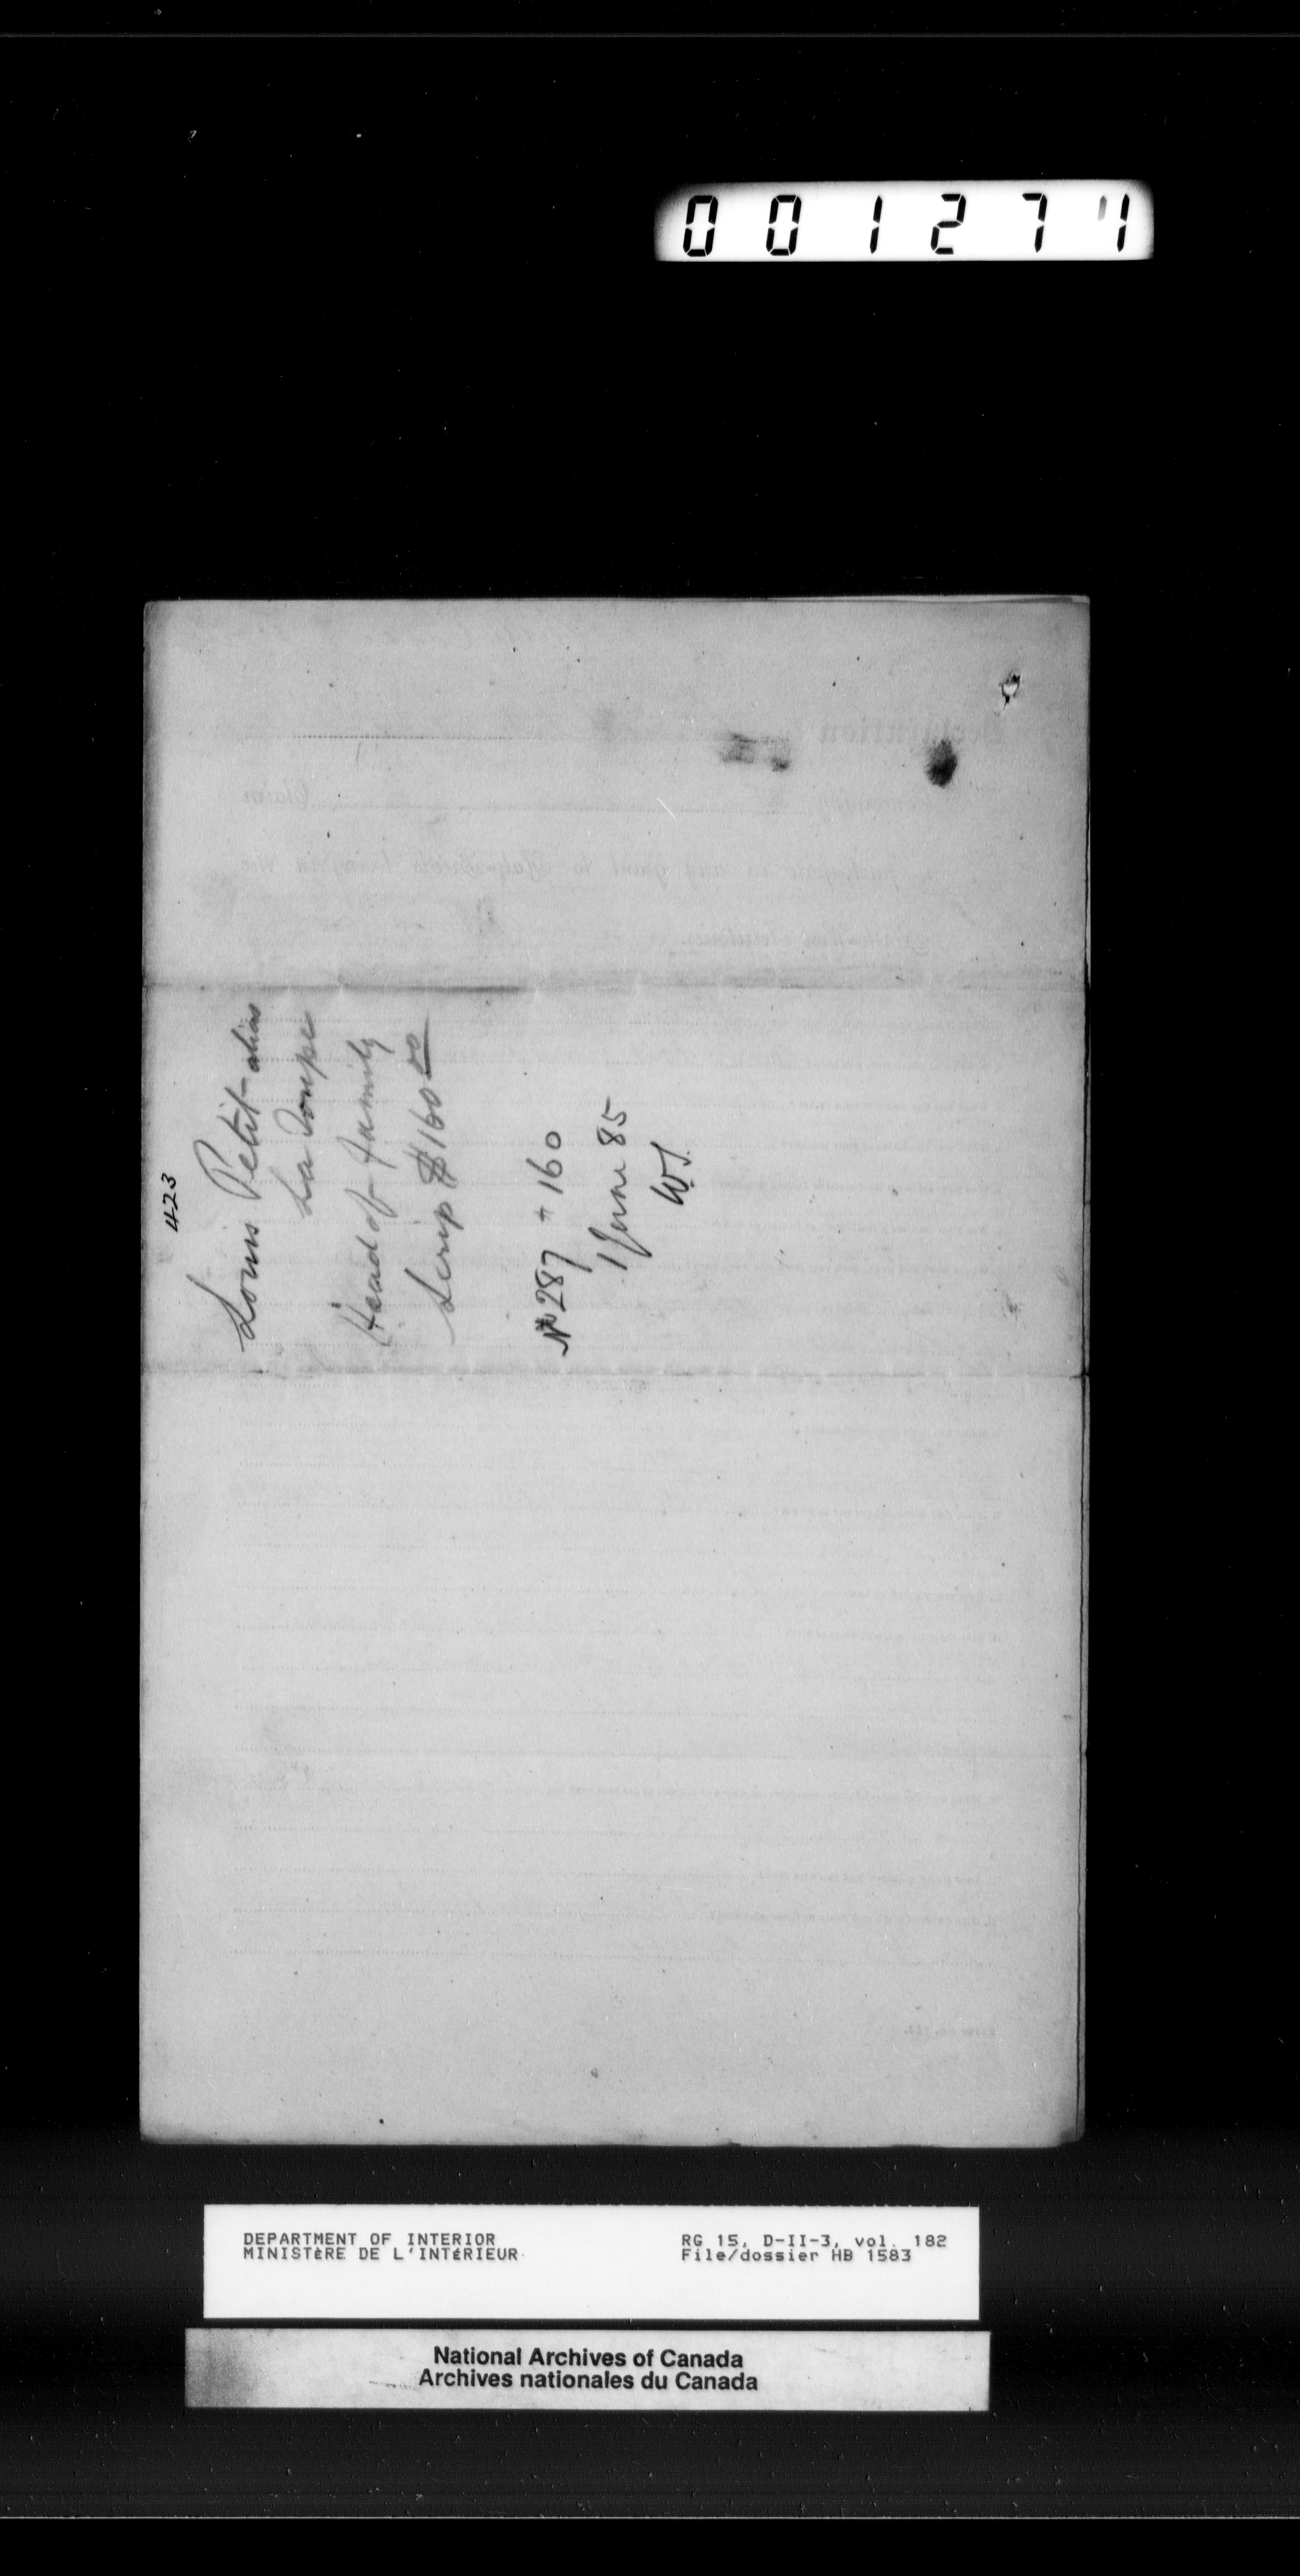 001271
423
Louis Petit - alias
La Toupe
Head of family
Scrip $160 00
No 287 + 160
1 June 85
W.S.
DEPARTMENT OF INTERIOR
MINISTÈRE DE L'INTÉRIEUR
RG 15, D-II-3, vol. 182
File/dossier HB 1583
National Archives of Canada
Archives nationales du Canada